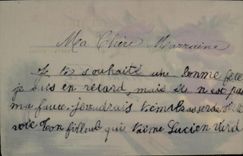 Ma Chère Marraine
Je te souhaite une bonne fête
je suis en retard, mais ce n'est pas
ma faute. Je voudrais t'embrasser
ton filleul qui t'aime Lucien